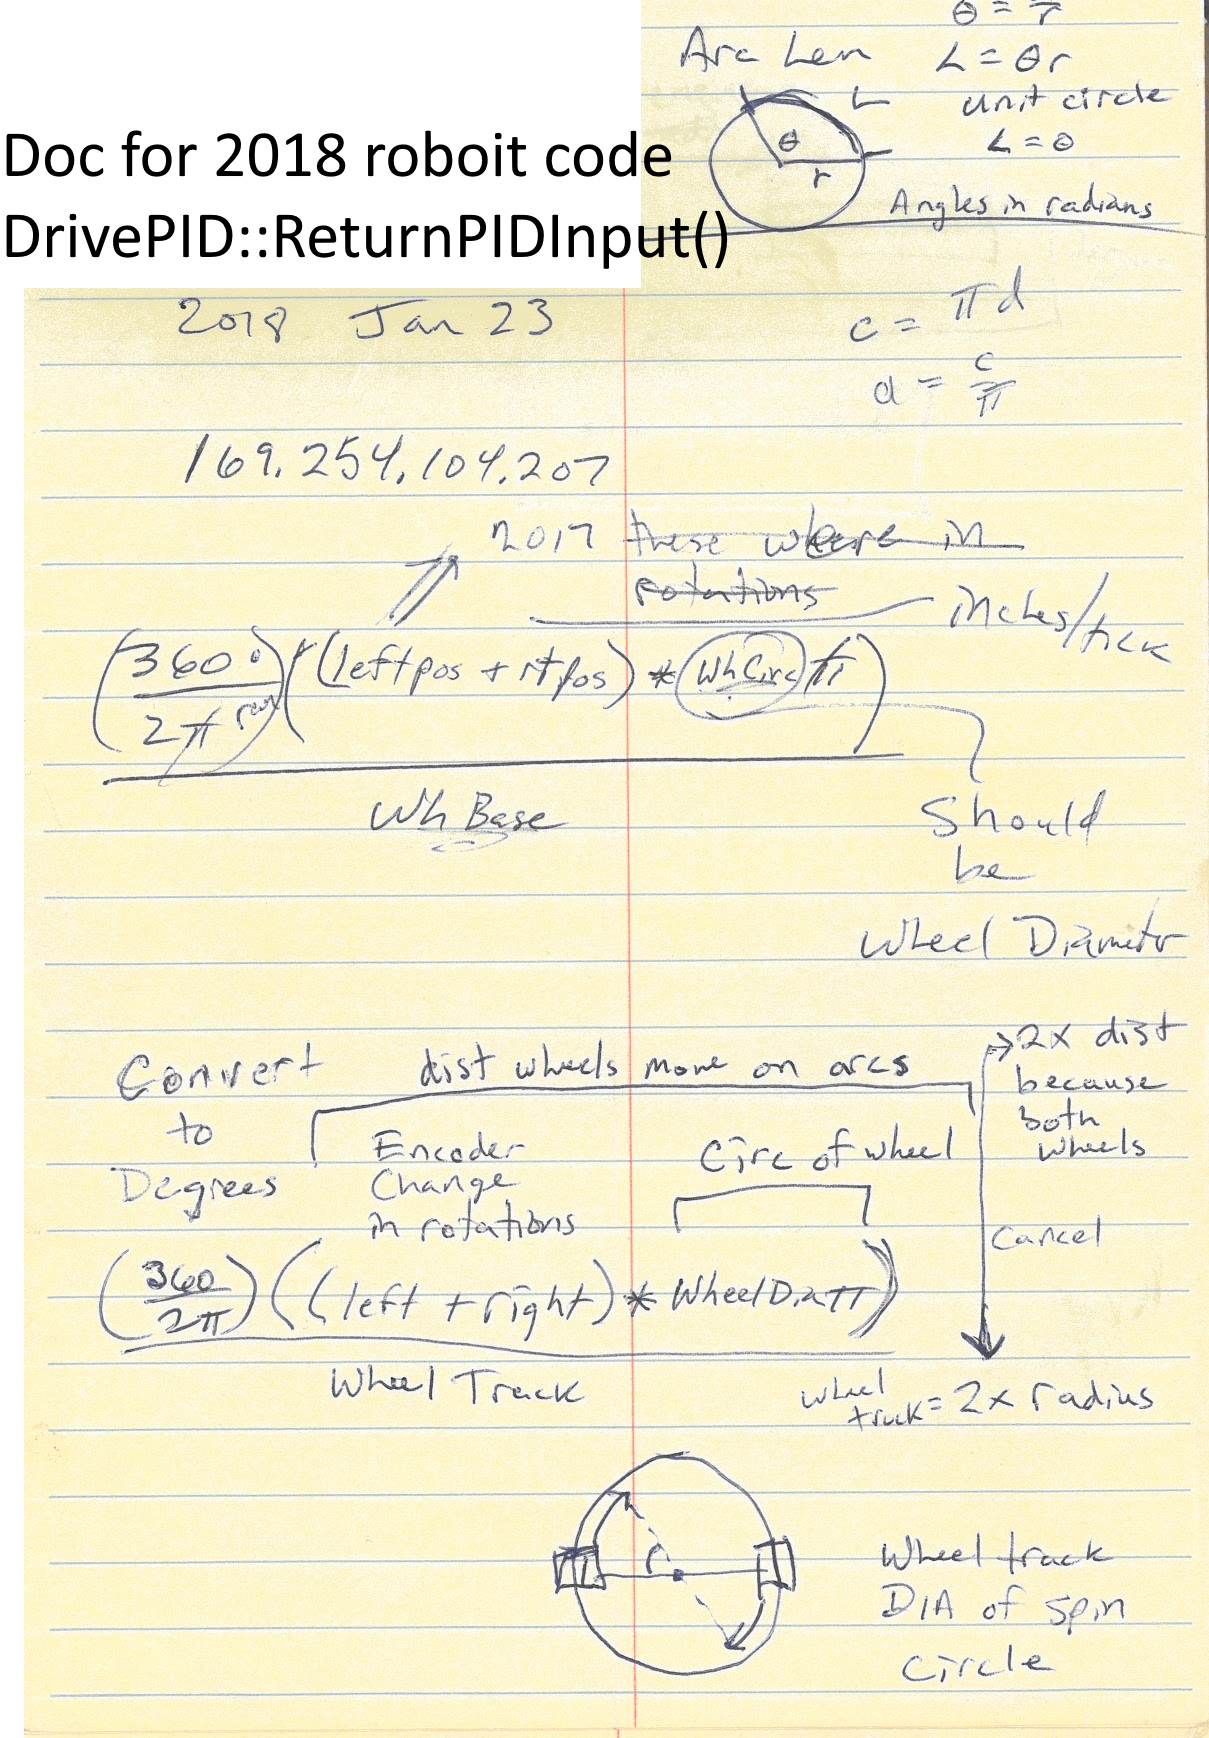 Doc for 2018 roboit code
DrivePID::ReturnPIDInput()
θ = / r
Arc Len L = θr
L unit circle
θ L = θ
r
Angles in radians
2018 Jan 23
c = πd
d = c/π
169.254.104.207
2017 these where in
rotations
inches/tick
(360°/2π rad)((leftpos + rtpos) * WhCirc π)
Wh Base
Should
be
Wheel Diameter
Convert
to
Degrees
dist wheels move on arcs
Encoder
Change
in rotations
Circ of wheel
2x dist
because
both
wheels
Cancel
(360/2π)((left + right) * WheelDia π)
Wheel Track
wheel
track = 2x radius
r
Wheel track
DIA of spin
circle